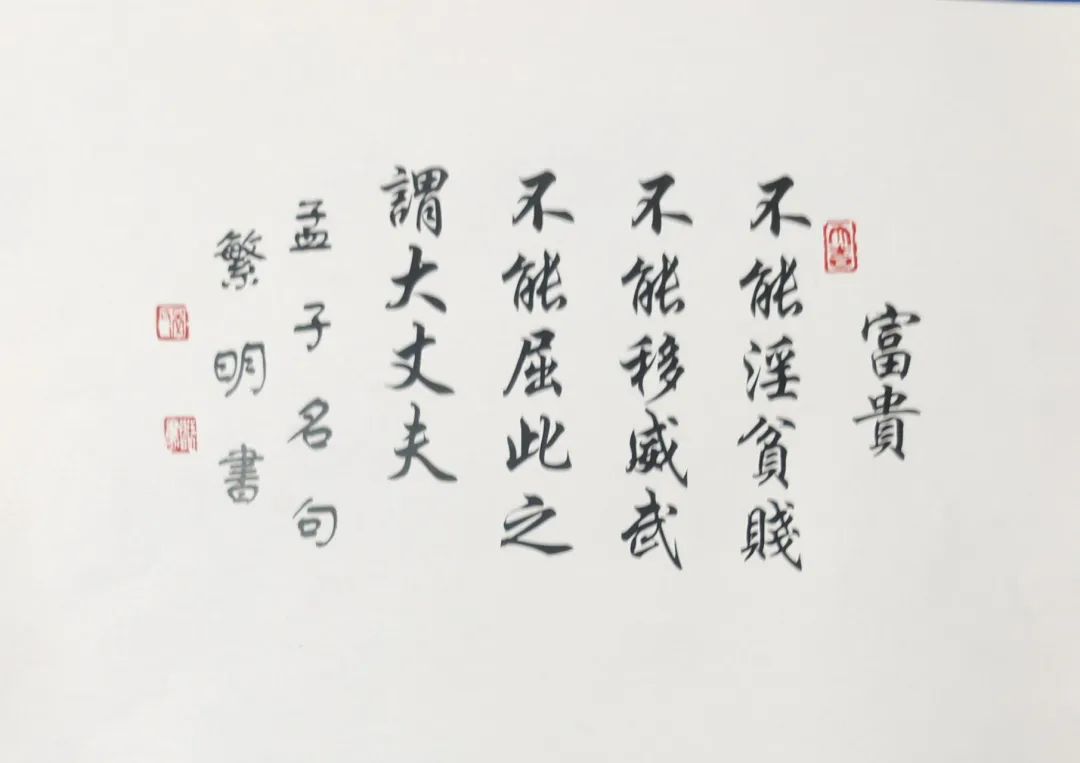 富貴
不能淫貧賤
不能移威武
不能屈此之
謂大丈夫
孟子名句
繁明書